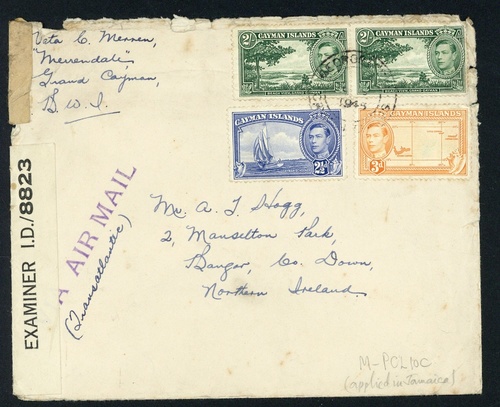 Veta C. Merren,
"Merrendale"
Grand Cayman,
B.W.I.
2/- CAYMAN ISLANDS
2/- CAYMAN ISLANDS
GEORGE
194
CAYMAN ISLANDS
2½d
CAYMAN ISLANDS
3d
EXAMINER I.D./8823
A AIR MAIL
(Transatlantic)
Mr. A. J. Hogg,
2, Manselton Park,
Bangor, Co. Down,
Northern Ireland.
M-PCL10C
(applied in Jamaica)